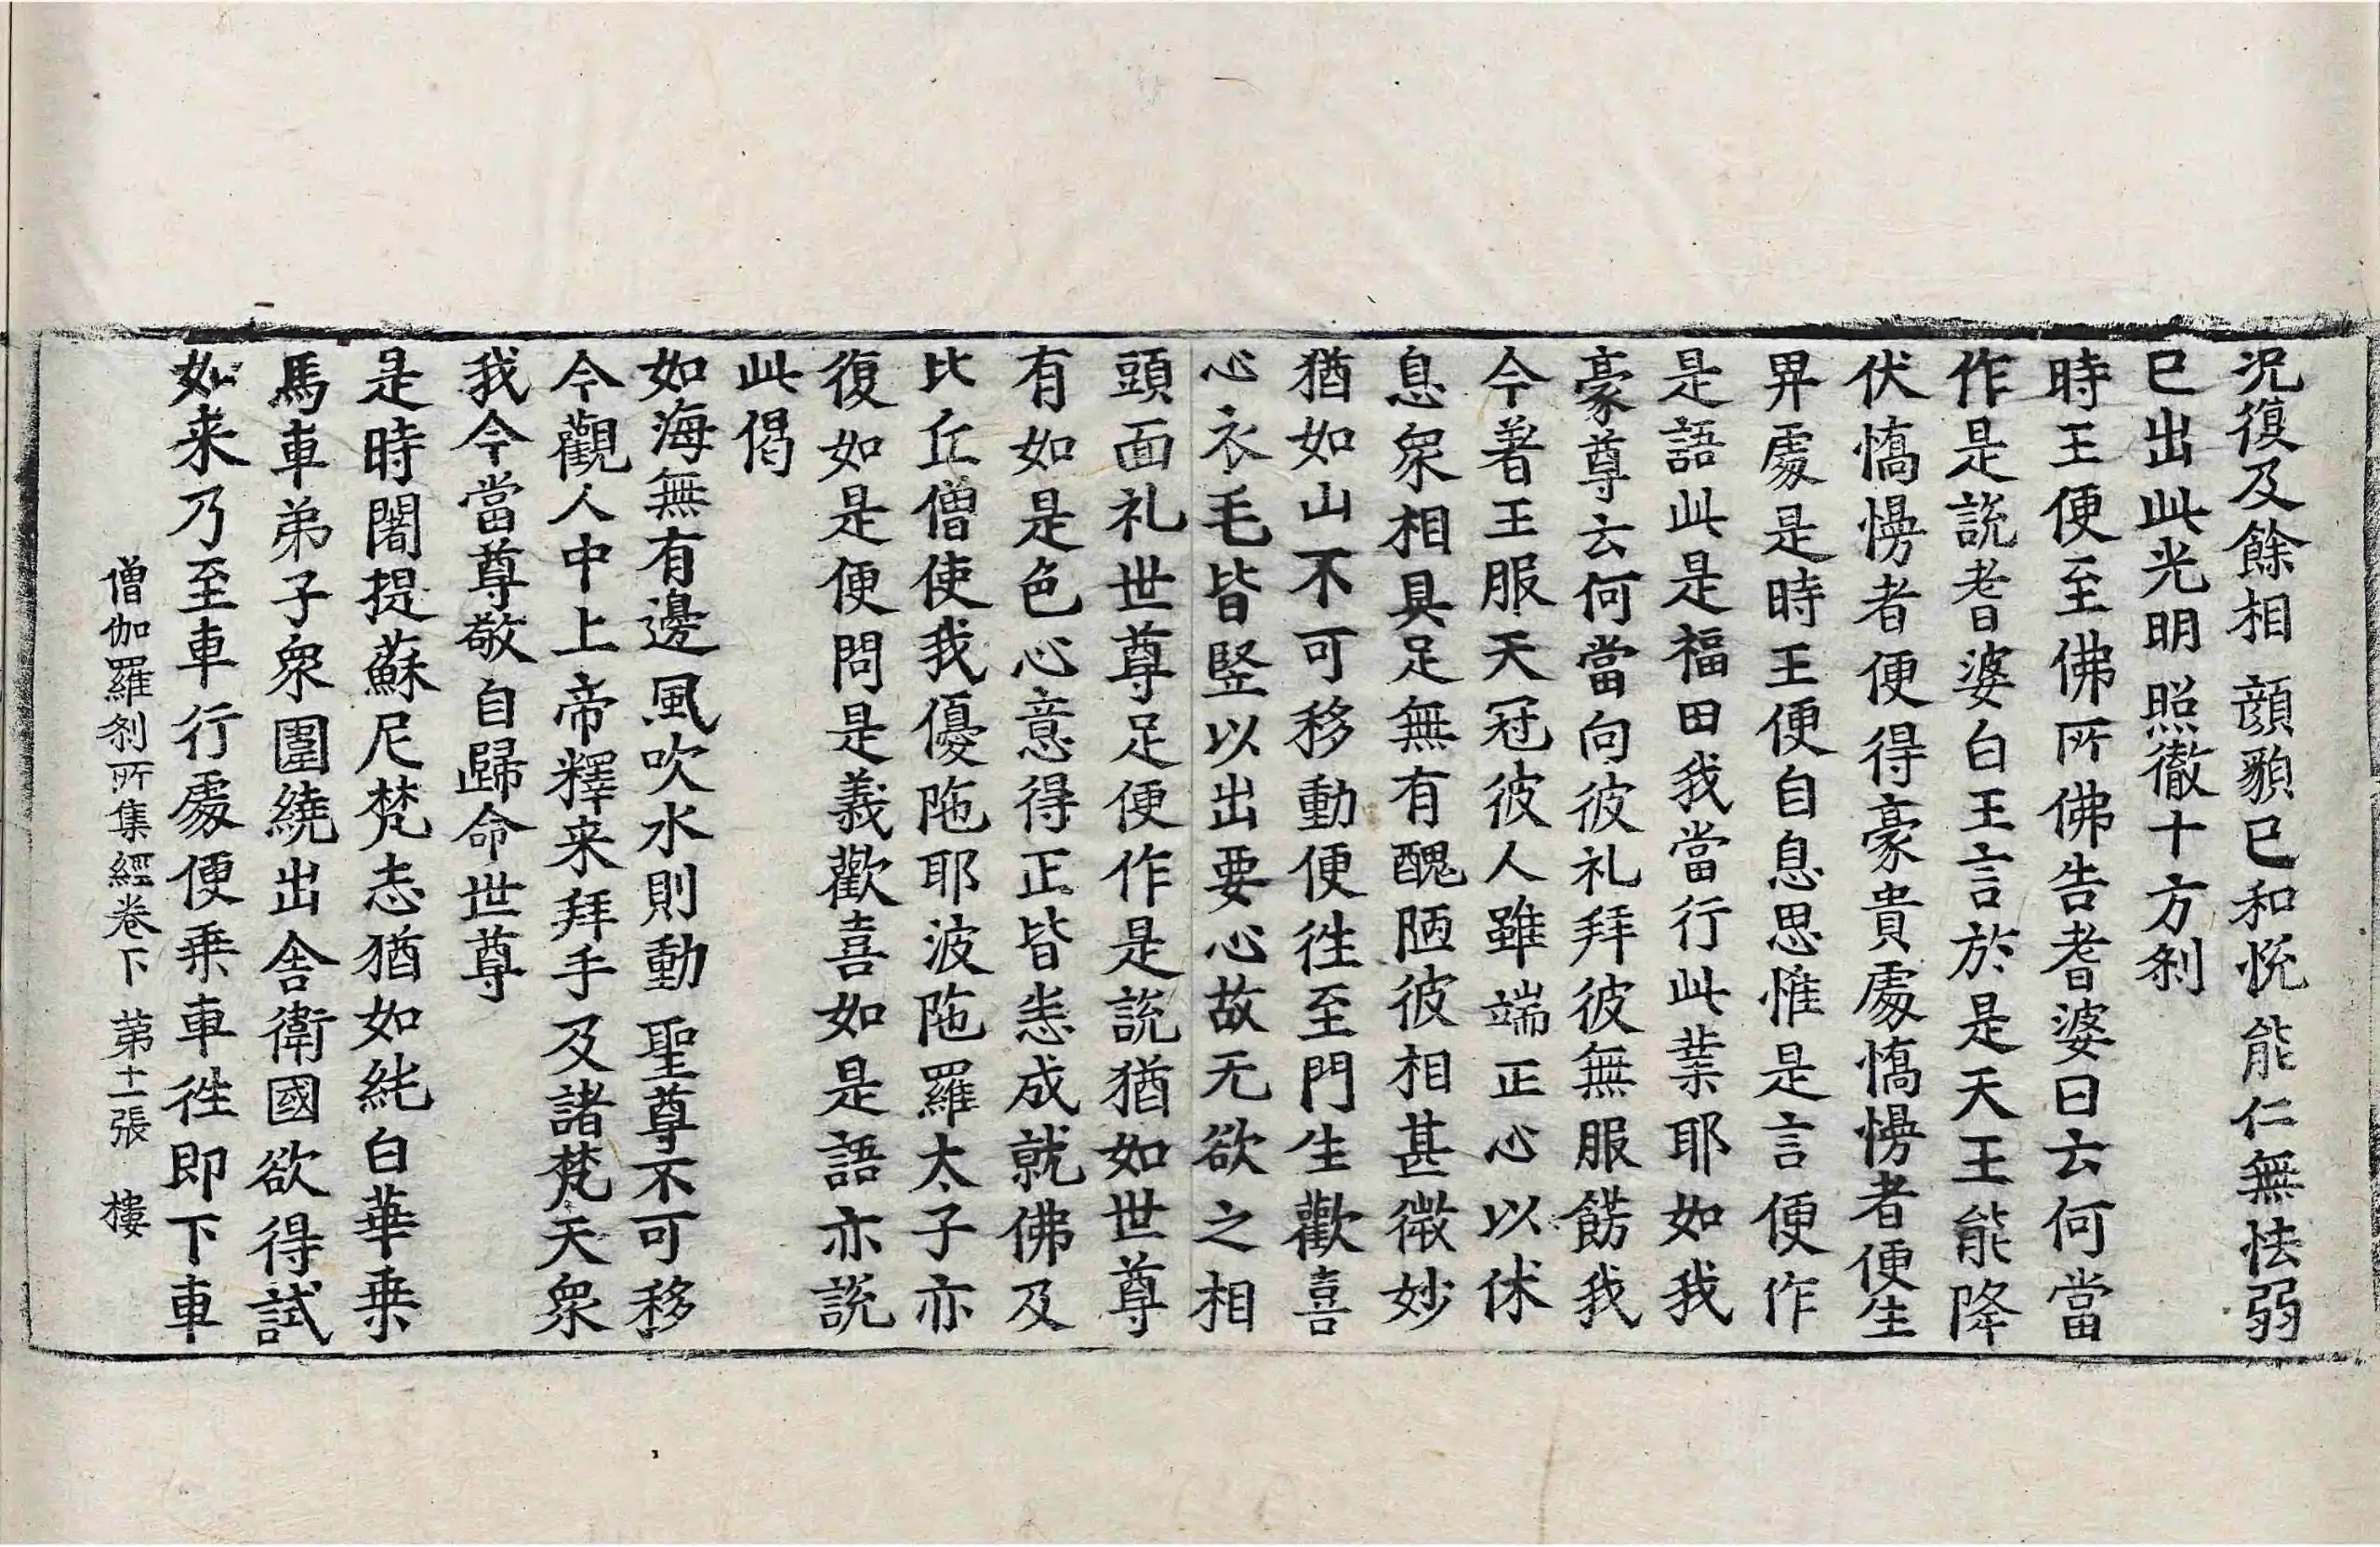 況復及餘相　顔貌已和悅　能仁無怯弱
已出此光明　照徹十方刹
時王便至佛所佛告耆婆曰云何當
作是說耆婆白王言於是天王能降
伏憍慢者便得豪貴處憍慢者便生
畀處是時王便自息思惟是言便作
是語此是福田我當行此業耶如我
豪尊云何當向彼礼拜彼無服餝我
今著王服天冠彼人雖端正心以休
息衆相具足無有醜陋彼相甚微妙
猶如山不可移動便徃至門生歡喜
心衣毛皆竪以出要心故无欲之相
頭面礼世尊足便作是說猶如世尊
有如是色心意得正皆悉成就佛及
比丘僧使我優陁耶波陁羅太子亦
復如是便問是義歡喜如是語亦說
此偈
如海無有邊　風吹水則動　聖尊不可移
今觀人中上　帝釋来拜手　及諸梵天衆
我今當尊敬　自歸命世尊
是時闍提蘇尼梵志猶如純白華乗
馬車弟子衆圍繞出舎衛國欲得試
如来乃至車行處便乗車徃即下車
僧伽羅刹所集經卷下　第十一張　樓